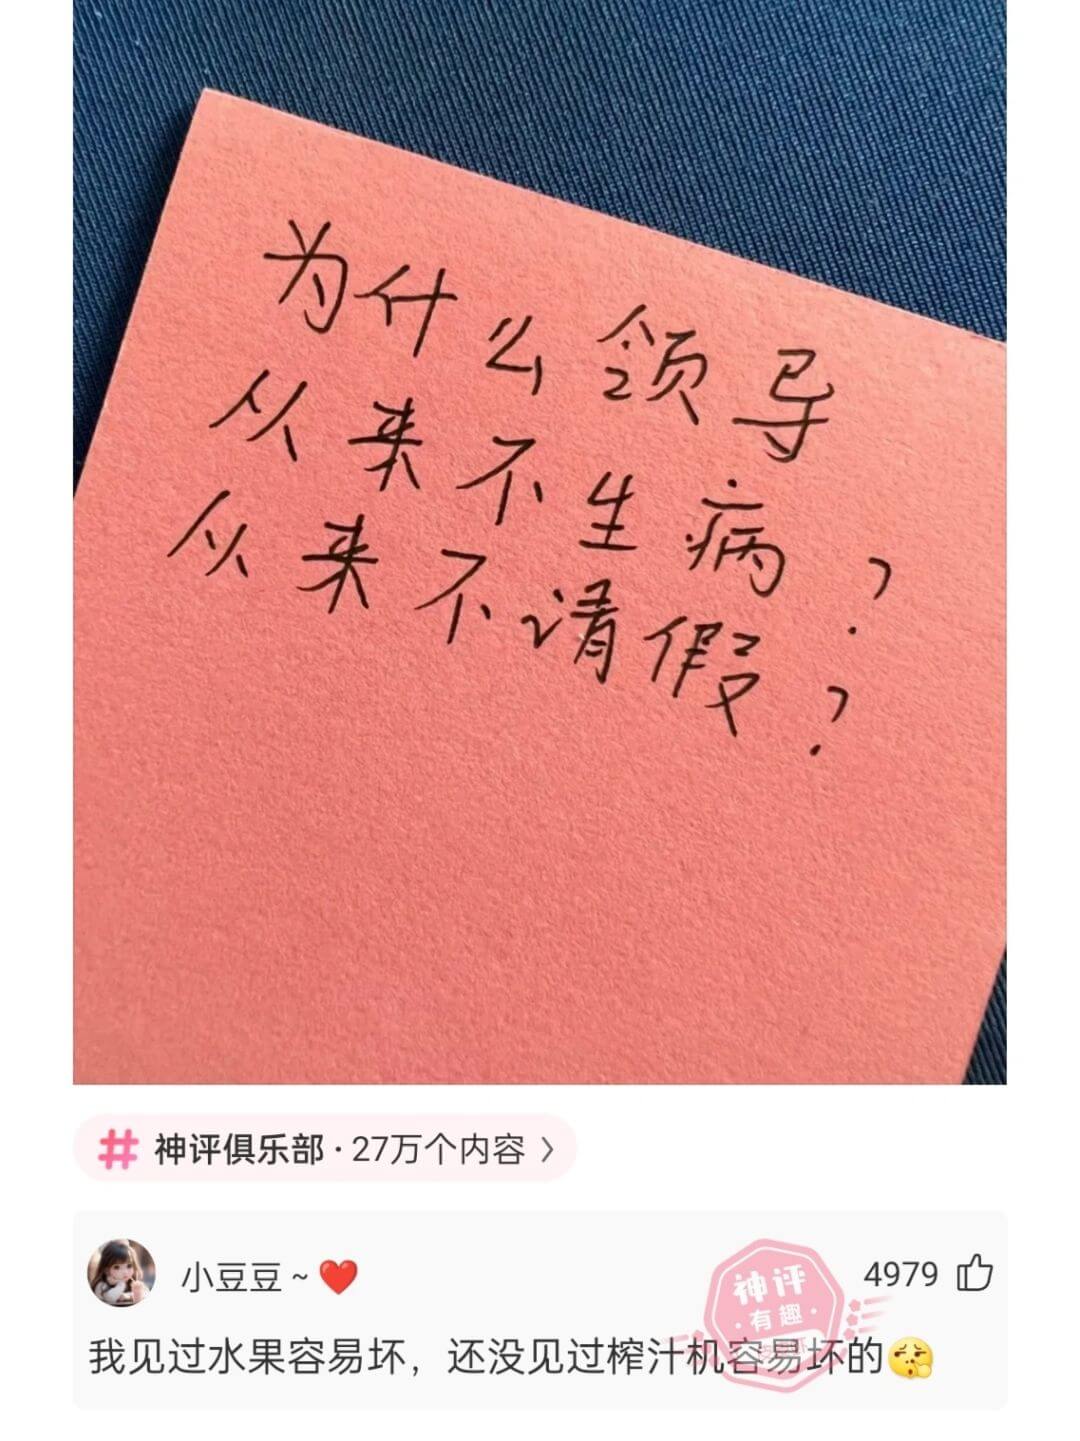 为什么领导
从来不生病?
从来不请假?
神评俱乐部·27万个内容 >
小豆豆~❤️
4979
神评
·有趣·
我见过水果容易坏，还没见过榨汁机容易坏的🫢